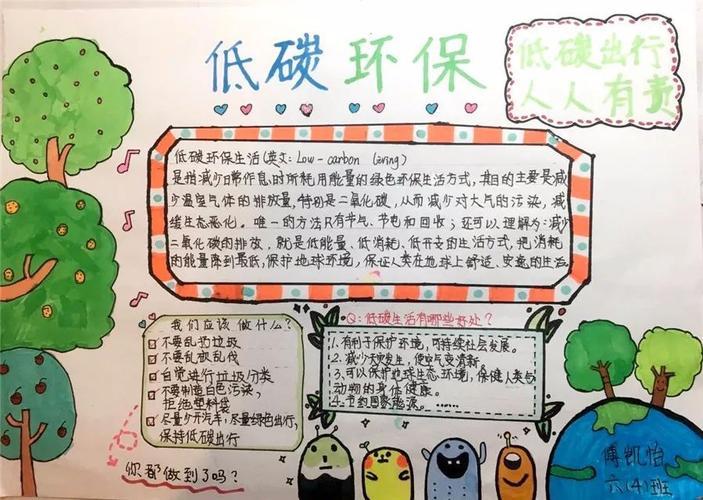 低碳环保
低碳出行
人人有责
低碳环保生活(英文:Low-carbon living)
是指减少日常作息时所耗用能量的绿色环保生活方式,其目的主要是减
少温室气体的排放量,特别是二氧化碳,从而减少对大气的污染,减
缓生态恶化。唯一的方法只有节气、节电和回收;还可以理解为:减少
二氧化碳的排放,就是低能量、低消耗、低开支的生活方式,把消耗
的能量降到最低,保护地球环境,保证人类在地球上舒适、安逸的生活。
我们应该做什么?
不要乱扔垃圾
不要乱砍乱伐
自觉进行垃圾分类
不要制造白色污染,
拒绝塑料袋
尽量少开汽车,尽量绿色出行,
保持低碳出行
你都做到了吗?
Q:低碳生活有哪些好处?
1.有利于保护环境,可持续社会发展。
2.减少天灾发生,使空气变清新
3.可以保护地球生态环境,保健人类与
动物的身体健康。
4.节约国家能源。……
傅凯怡
六(4)班